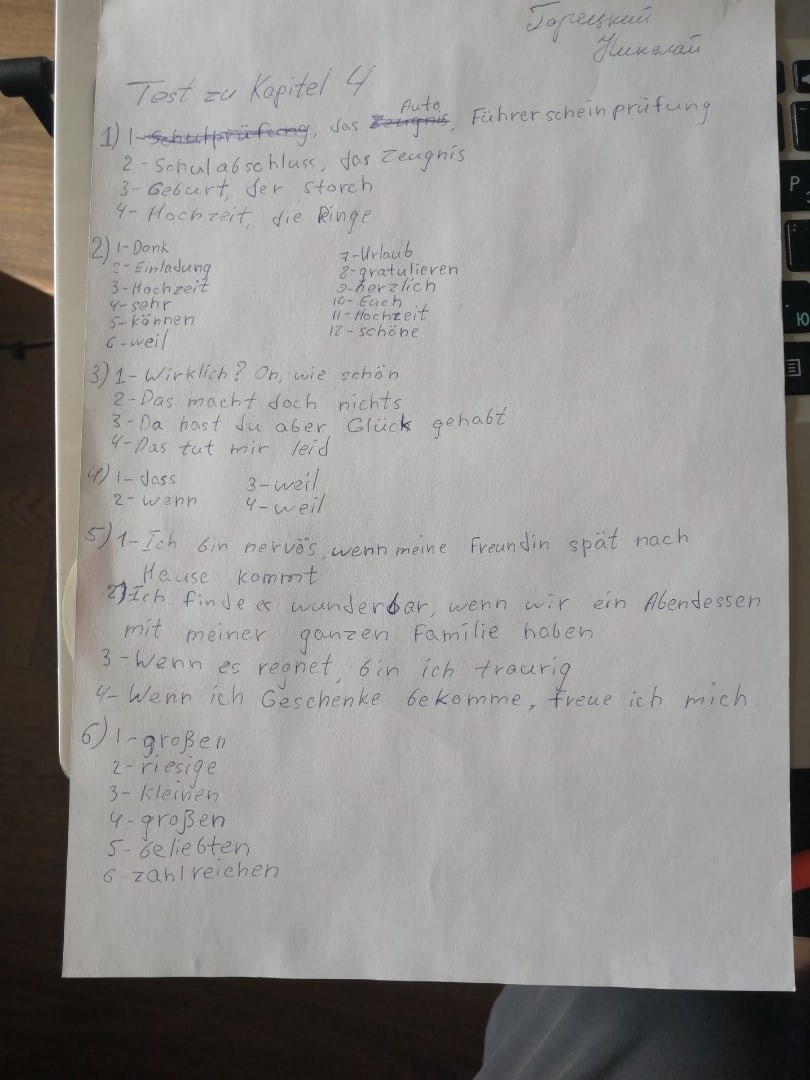 Горецкий
Николай
Test zu Kapitel 4
Auto
1) 1-Schulprüfung, das Zeugnis, Führerscheinprüfung
2-Schulabschluss, das Zeugnis
3-Geburt, der Storch
4-Hochzeit, die Ringe
2) 1-Dank
2-Einladung
3-Hochzeit
4-sehr
5-können
6-weil
7-Urlaub
8-gratulieren
9-herzlich
10-Euch
11-Hochzeit
12-schöne
3) 1-Wirklich? Oh, wie schön
2-Das macht doch nichts
3-Da hast du aber Glück gehabt
4-Das tut mir leid
4) 1-dass
2-wenn
3-weil
4-weil
5) 1-Ich bin nervös, wenn meine Freundin spät nach
Hause kommt
2) Ich finde es wunderbar, wenn wir ein Abendessen
mit meiner ganzen Familie haben
3-Wenn es regnet, bin ich traurig
4-Wenn ich Geschenke bekomme, freue ich mich.
6) 1-großen
2-riesige
3-kleinen
4-großen
5-beliebten
6-zahlreichen
P
Ю